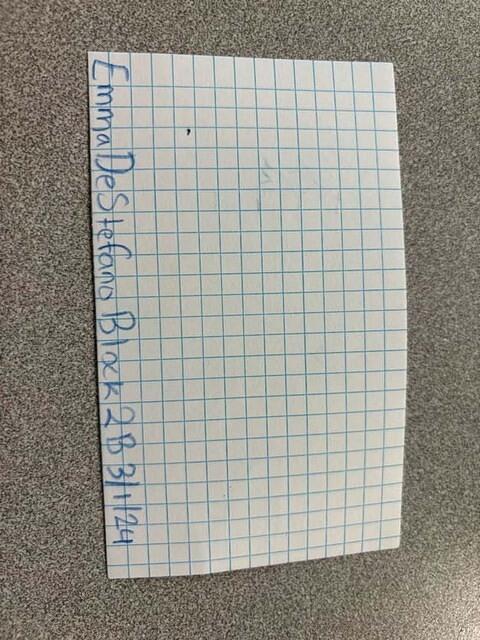 Emma DeStefano Block 2B 3/1/24